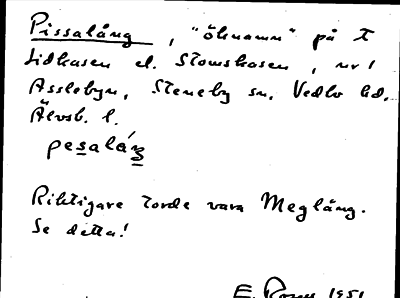 Pissalång, "öknamn" på T
Lidkasen el. Stomskasen, nr 1
Asslebyn, Steneby sn, Vedbo hd,
Älvsb. l.
pesalåŋ
Riktigare torde vara Meglång.
Se detta!
E. 1951